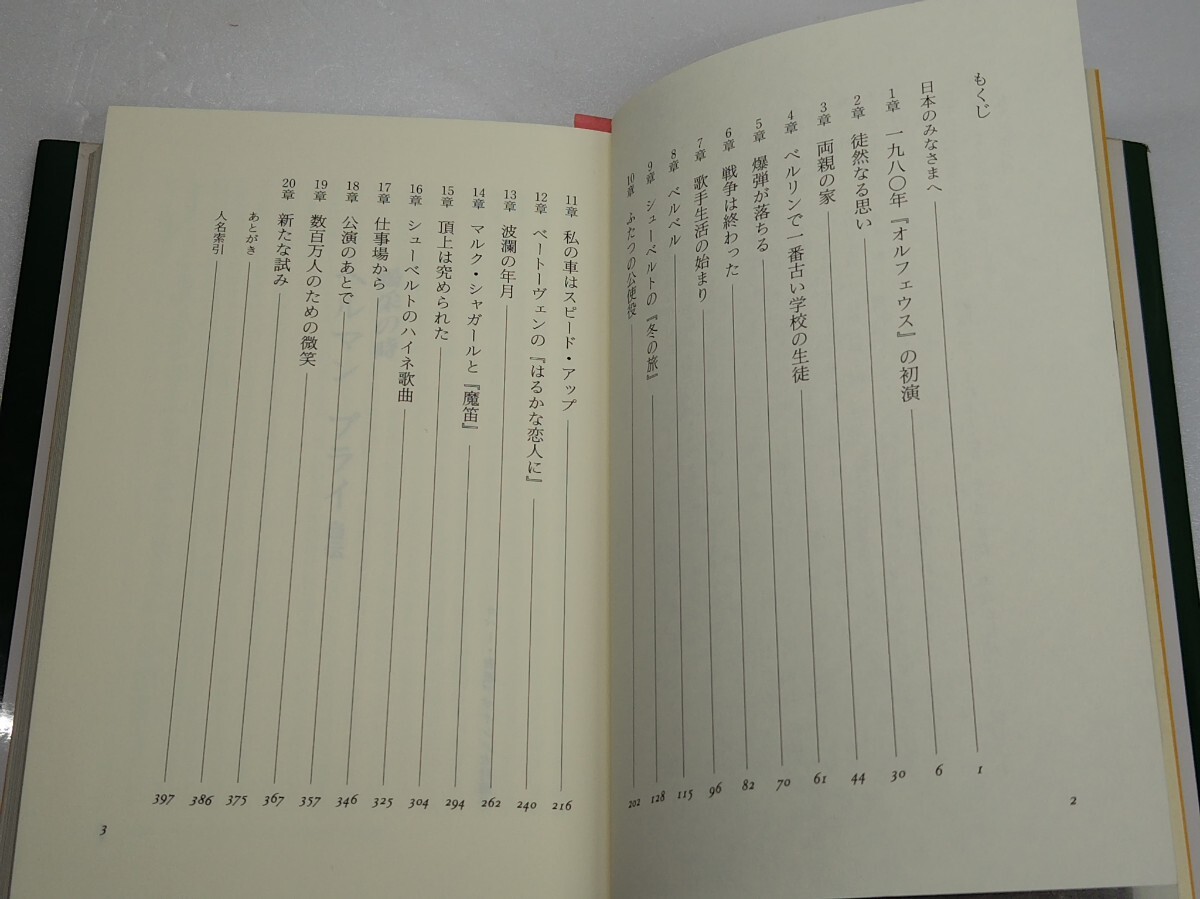 もくじ
日本のみなさまへ 1
1章 一九八〇年『オルフェウス』の初演 6
2章 徒然なる思い 30
3章 両親の家 44
4章 ベルリンで一番古い学校の生徒 61
5章 爆弾が落ちる 70
6章 戦争は終わった 82
7章 歌手生活の始まり 96
8章 ベルベル 115
9章 シューベルトの『冬の旅』 128
10章 ふたつの公使役 202
2
11章 私の車はスピード・アップ 216
12章 ベートーヴェンの『はるかな恋人に』 240
13章 波瀾の年月 262
14章 マルク・シャガールと『魔笛』 294
15章 頂上は究められた 304
16章 シューベルトのハイネ歌曲 325
17章 仕事場から 346
18章 公演のあとで 357
19章 数百万人のための微笑 367
20章 新たな試み 375
あとがき 386
人名索引 397
3